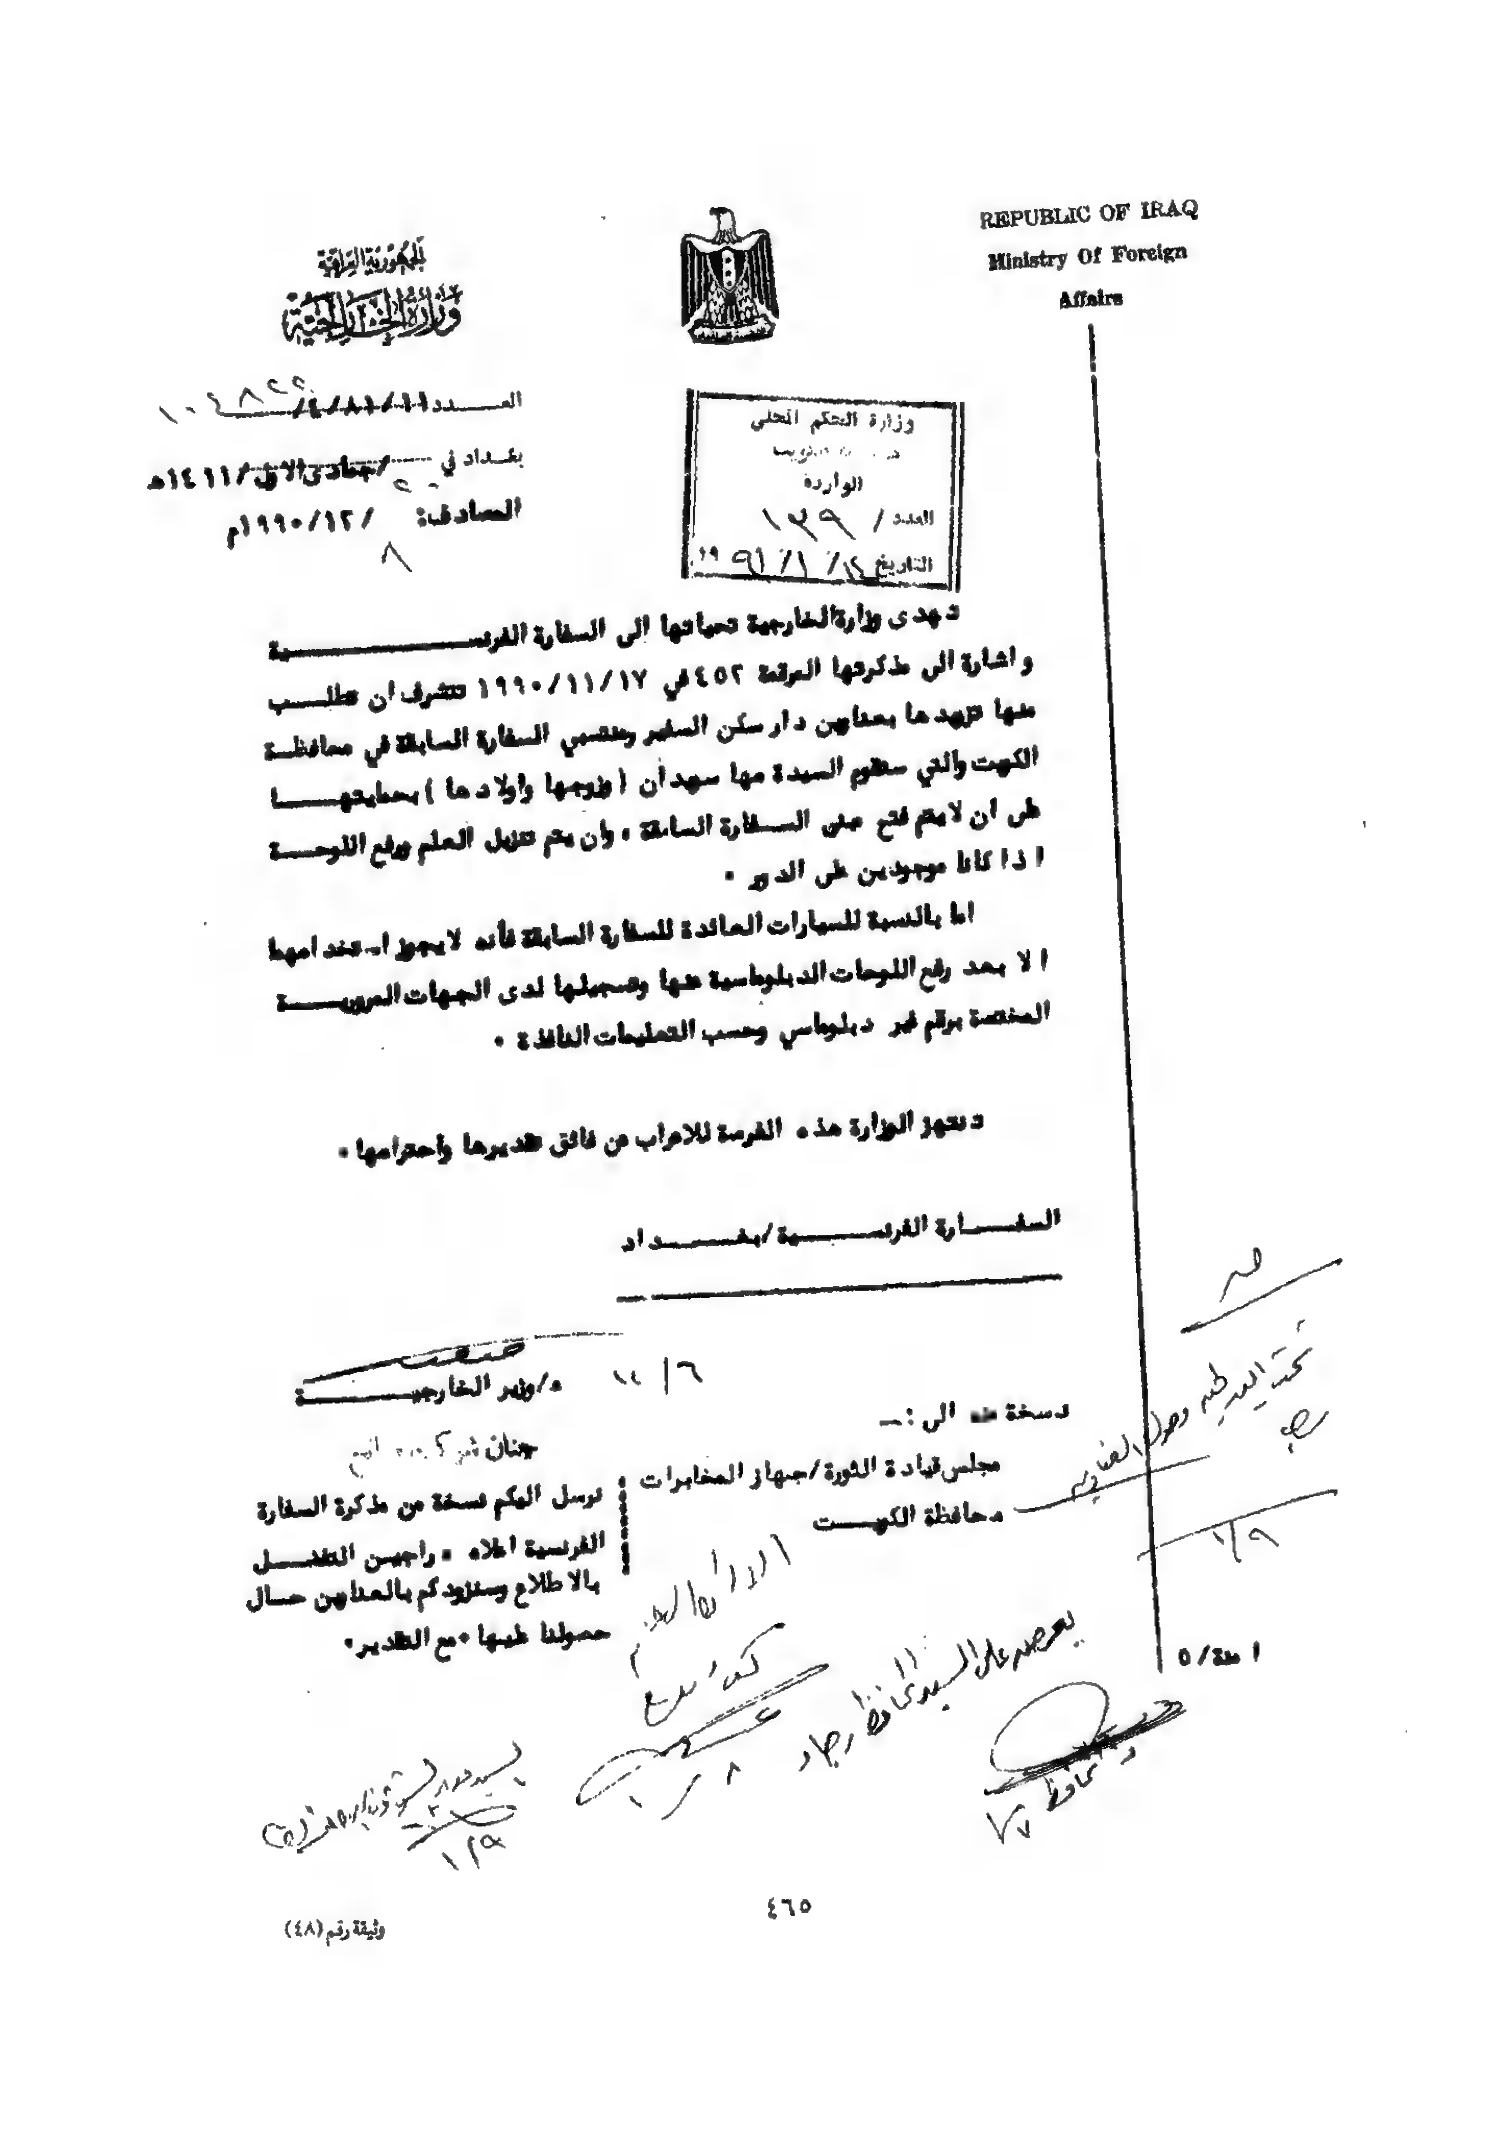 REPUBLIC OF IRAQ
Ministry Of Foreign
Affairs
الجمهورية العراقية
وزارة الخارجية
العـــدد ٤/٨١/١١/ ١٠٤٨٢٢
بغـداد في /جمادى الاول/١٤١١هـ
المصادف: ٢٠ /١٢/١٩٩٠م
٨
وزارة الحكم المحلي
الواردة
العدد / ١٣٩
التاريخ ١٢/ ١/ ١٩٩١
تهدى وزارة الخارجية تحياتها الى السفارة الفرنســـــية
واشارة الى مذكرتها المرقمة ٤٥٢ في ١٩٩٠/١١/١٧ تتشرف ان تطلـــب
منها تزويدها بعناوين دار سكن السفير ومنتسبي السفارة السابقة في محافظـة
الكويت والتي ستقوم السيدة مها سهدان (وزوجها واولادها) بحمايتهـــا
على ان لايتم فتح مبنى الســفارة السابقة ٠ وان يتم تنزيل العلم ورفع اللوحـــة
اذا كانا موجودين على الدور ٠
اما بالنسبة للسيارات العائدة للسفارة السابقة فأنه لايجوز استخدامها
الا بعد رفع اللوحات الدبلوماسية عنها وتسجيلها لدى الجهات المروريـــة
المختصة برقم غير دبلوماسي وحسب التعليمات النافذة ٠
تنتهز الوزارة هذه الفرصة للاعراب عن فائق تقديرها واحترامها٠
السفــارة الفرنســـية/بغـــداد
١٢/٦
ع/وزير الخارجيـــــة
نسخة منه الى :ـ
مجلس قيادة الثورة/جهاز المخابرات
محافظة الكويـــت
نرسل اليكم نسخة من مذكرة السفارة
الفرنسية اعلاه ٠ راجين التفضـــل
بالاطلاع وسنزودكم بالعناوين حـــال
حصولنا عليها ٠مع التقدير٠
وصول العناوين
١/٩
يعرض على السيد المحافظ رجاء
١/٨
المحافظ
١/٧
١/٩
٥/
٤٦٥
وثيقة رقم (٤٨)